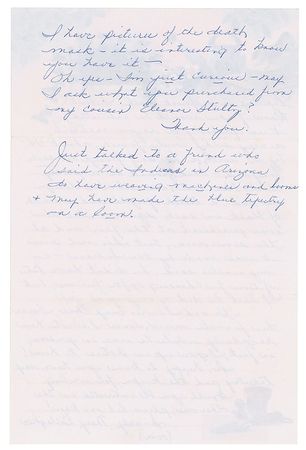 I have pictures of the death
mask - it is interesting to know
you have it -
Oh yes - I'm just curious - may
I ask what you purchased from
my cousin Eleanor Stultz?
Thank you.
Just talked to a friend who
said the Indians in Arizona
do have weaving machines and looms
+ may have made the blue tapestry
on a loom.